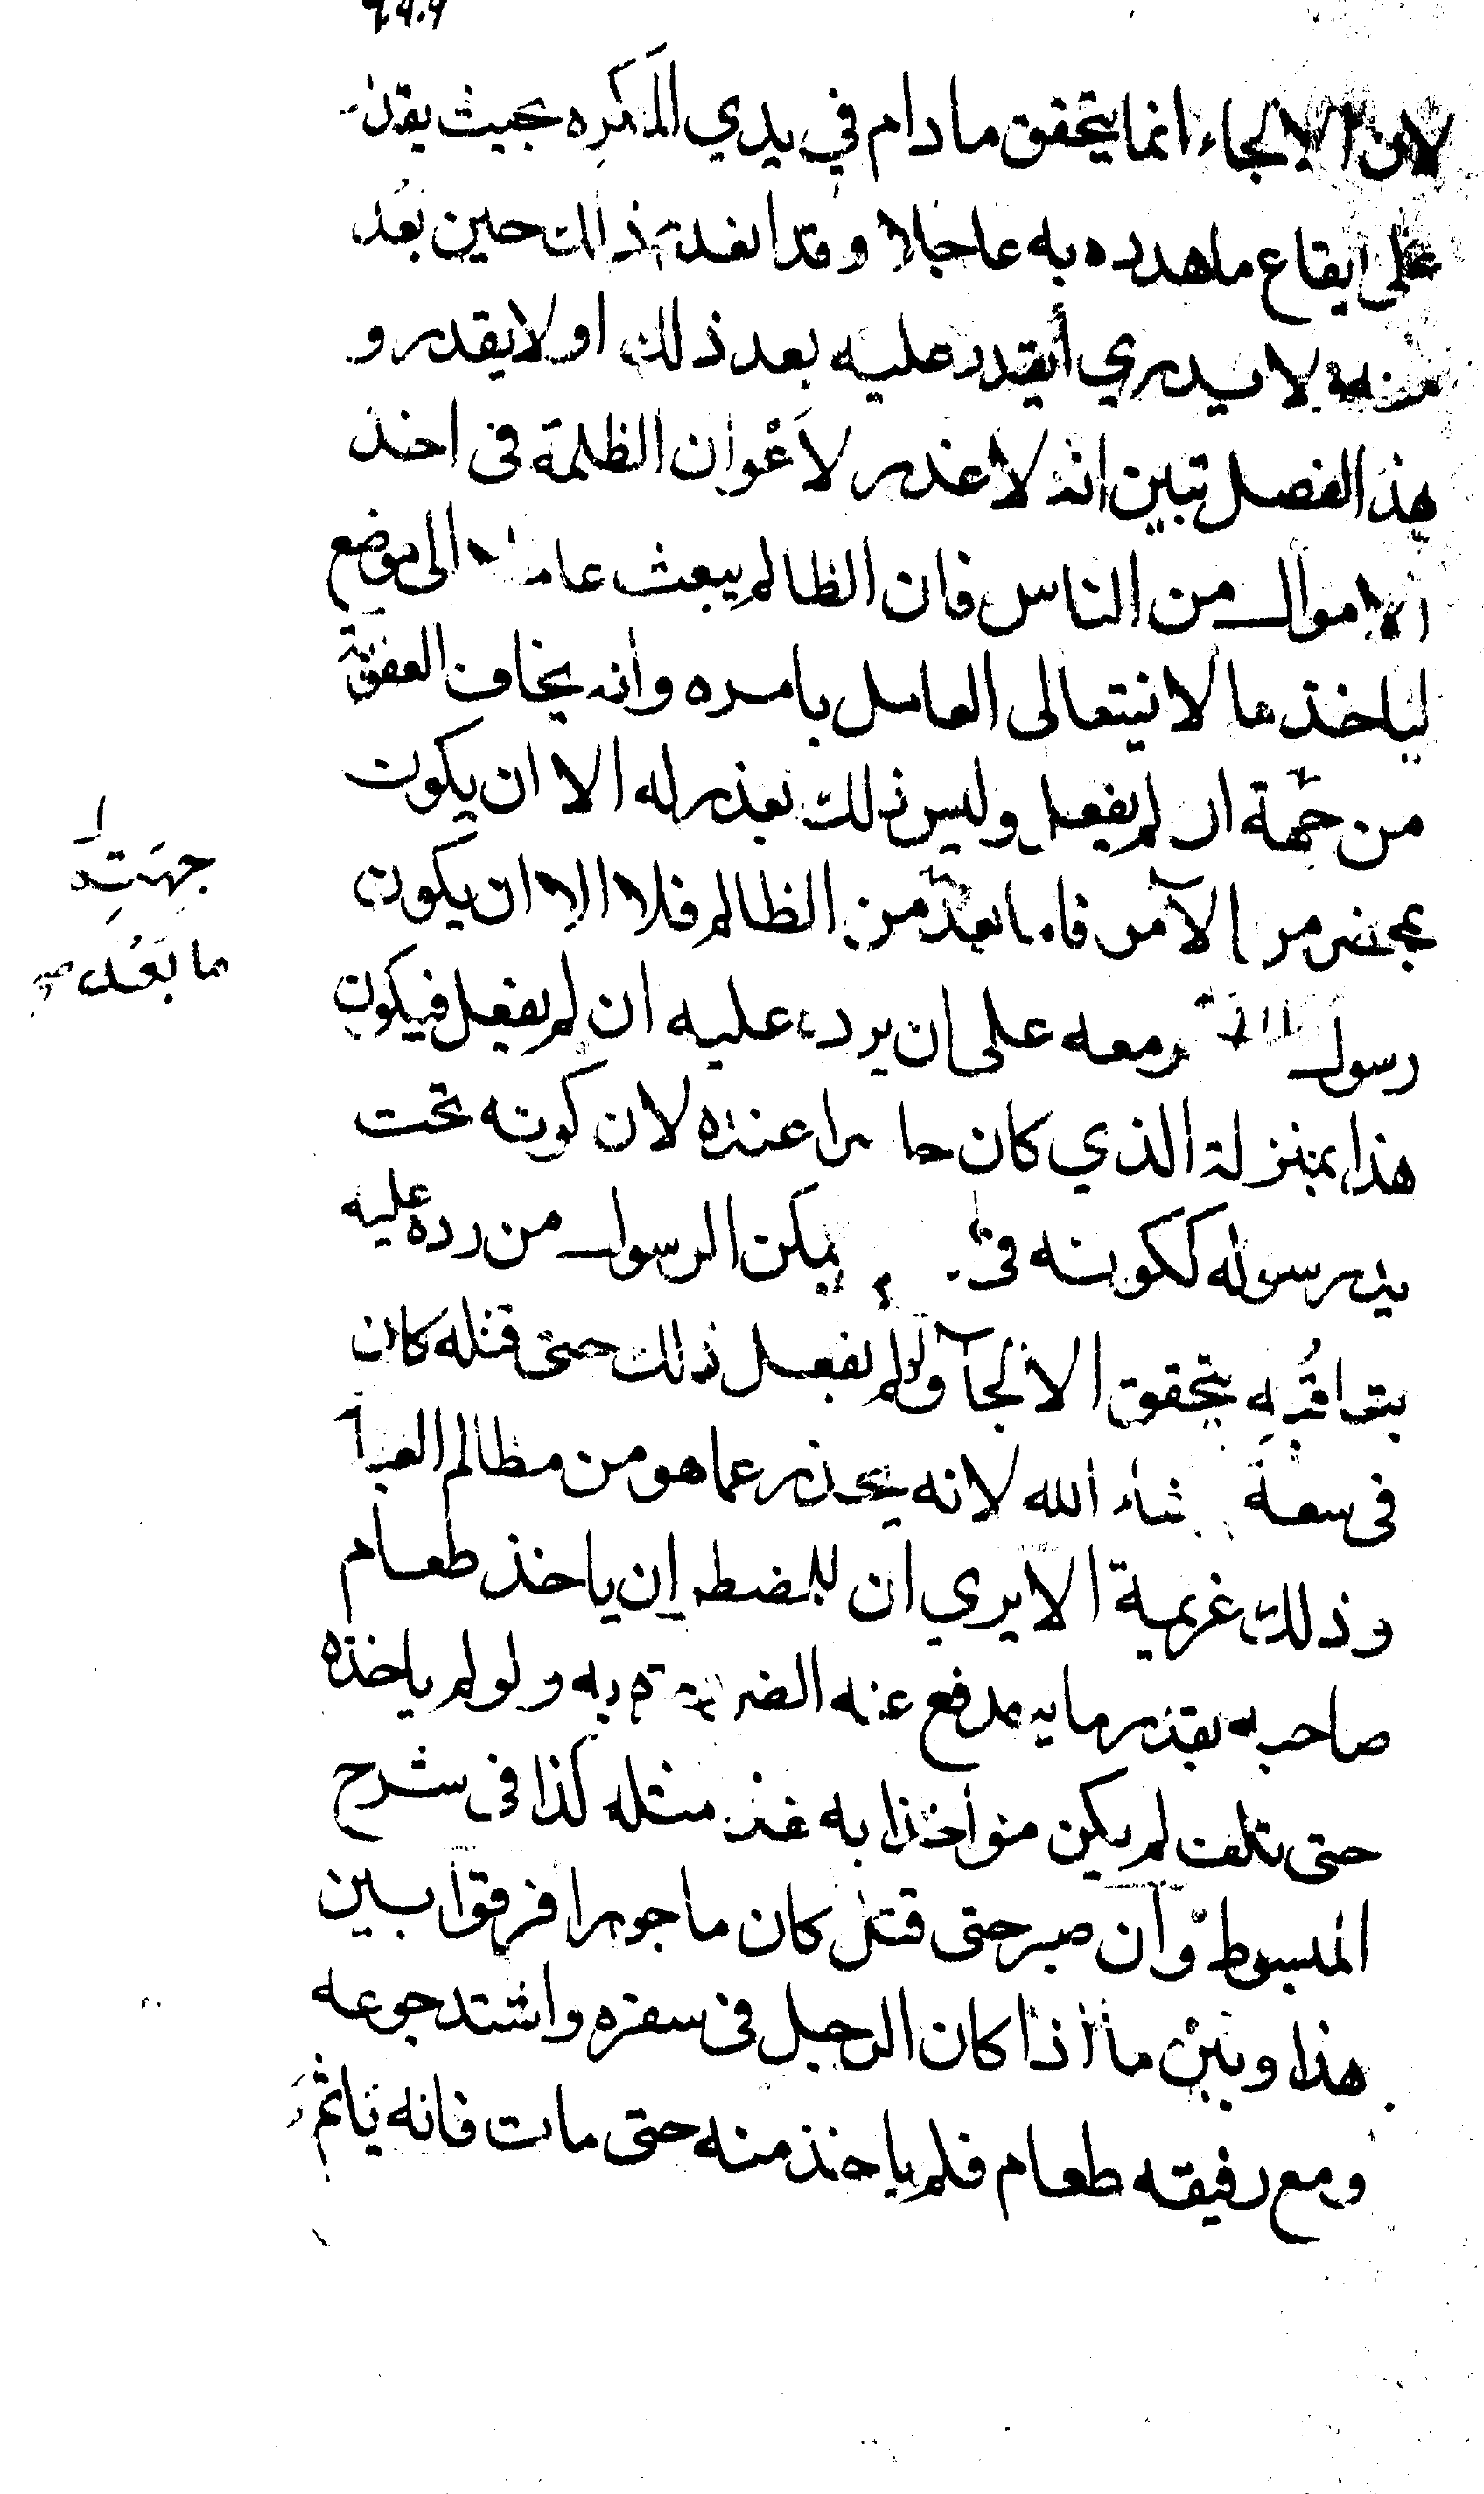 لان الالجاء انما يتحقق مادام في يدي المكره بحيث يقدر
على ايقاع ما هدده به عاجلا وقد انعدم ذلك حين بعد
منه ولا يدري أيقدر عليه بعد ذلك او لا يقدر و
بهذا الفصل تبين انه لا عذر لاعوان الظلمة فى اخذ
الاموال من الناس فان الظالم يبعث عاملا الى موضع
لياخذ مالا فيتعالى العامل بامره وانه يخاف العقوبة
من جهة ان لم يفعل وليس ذلك بعذر له الا ان يكون
بمحضر من الآمر فاما بعد من الظالم فلا الا ان يكون
رسول معه على ان يرد عليه ان لم يفعل فيكون
هذا بمنزلة الذي كان حاضرا عنده لان كونه تحت
يد رسوله ككونه فى يمكن الرسول من رده عليه
يتحقق الالجآ ولو لم يفعل ذلك حتى قتله كان
فى سعة شاء الله لانه يحذر عما هو من مظالم العباد
وذلك عزيمة الا يري ان للمضطر ان ياخذ طعام
صاحبه بقدر ما يندفع عنه الضرورة به ولو لم ياخذه
حتى تلف لم يكن مؤاخذا به فذا مثله كذا فى شرح
المبسوط وان صبر حتى قتل كان ماجورا فرقوا بين
هذا وبين ما اذا كان الرجل فى سفره واشتد جوعه
ومع رفيقه طعام فلم ياخذ منه حتى مات فانه ياثم
جهته
ما بعد